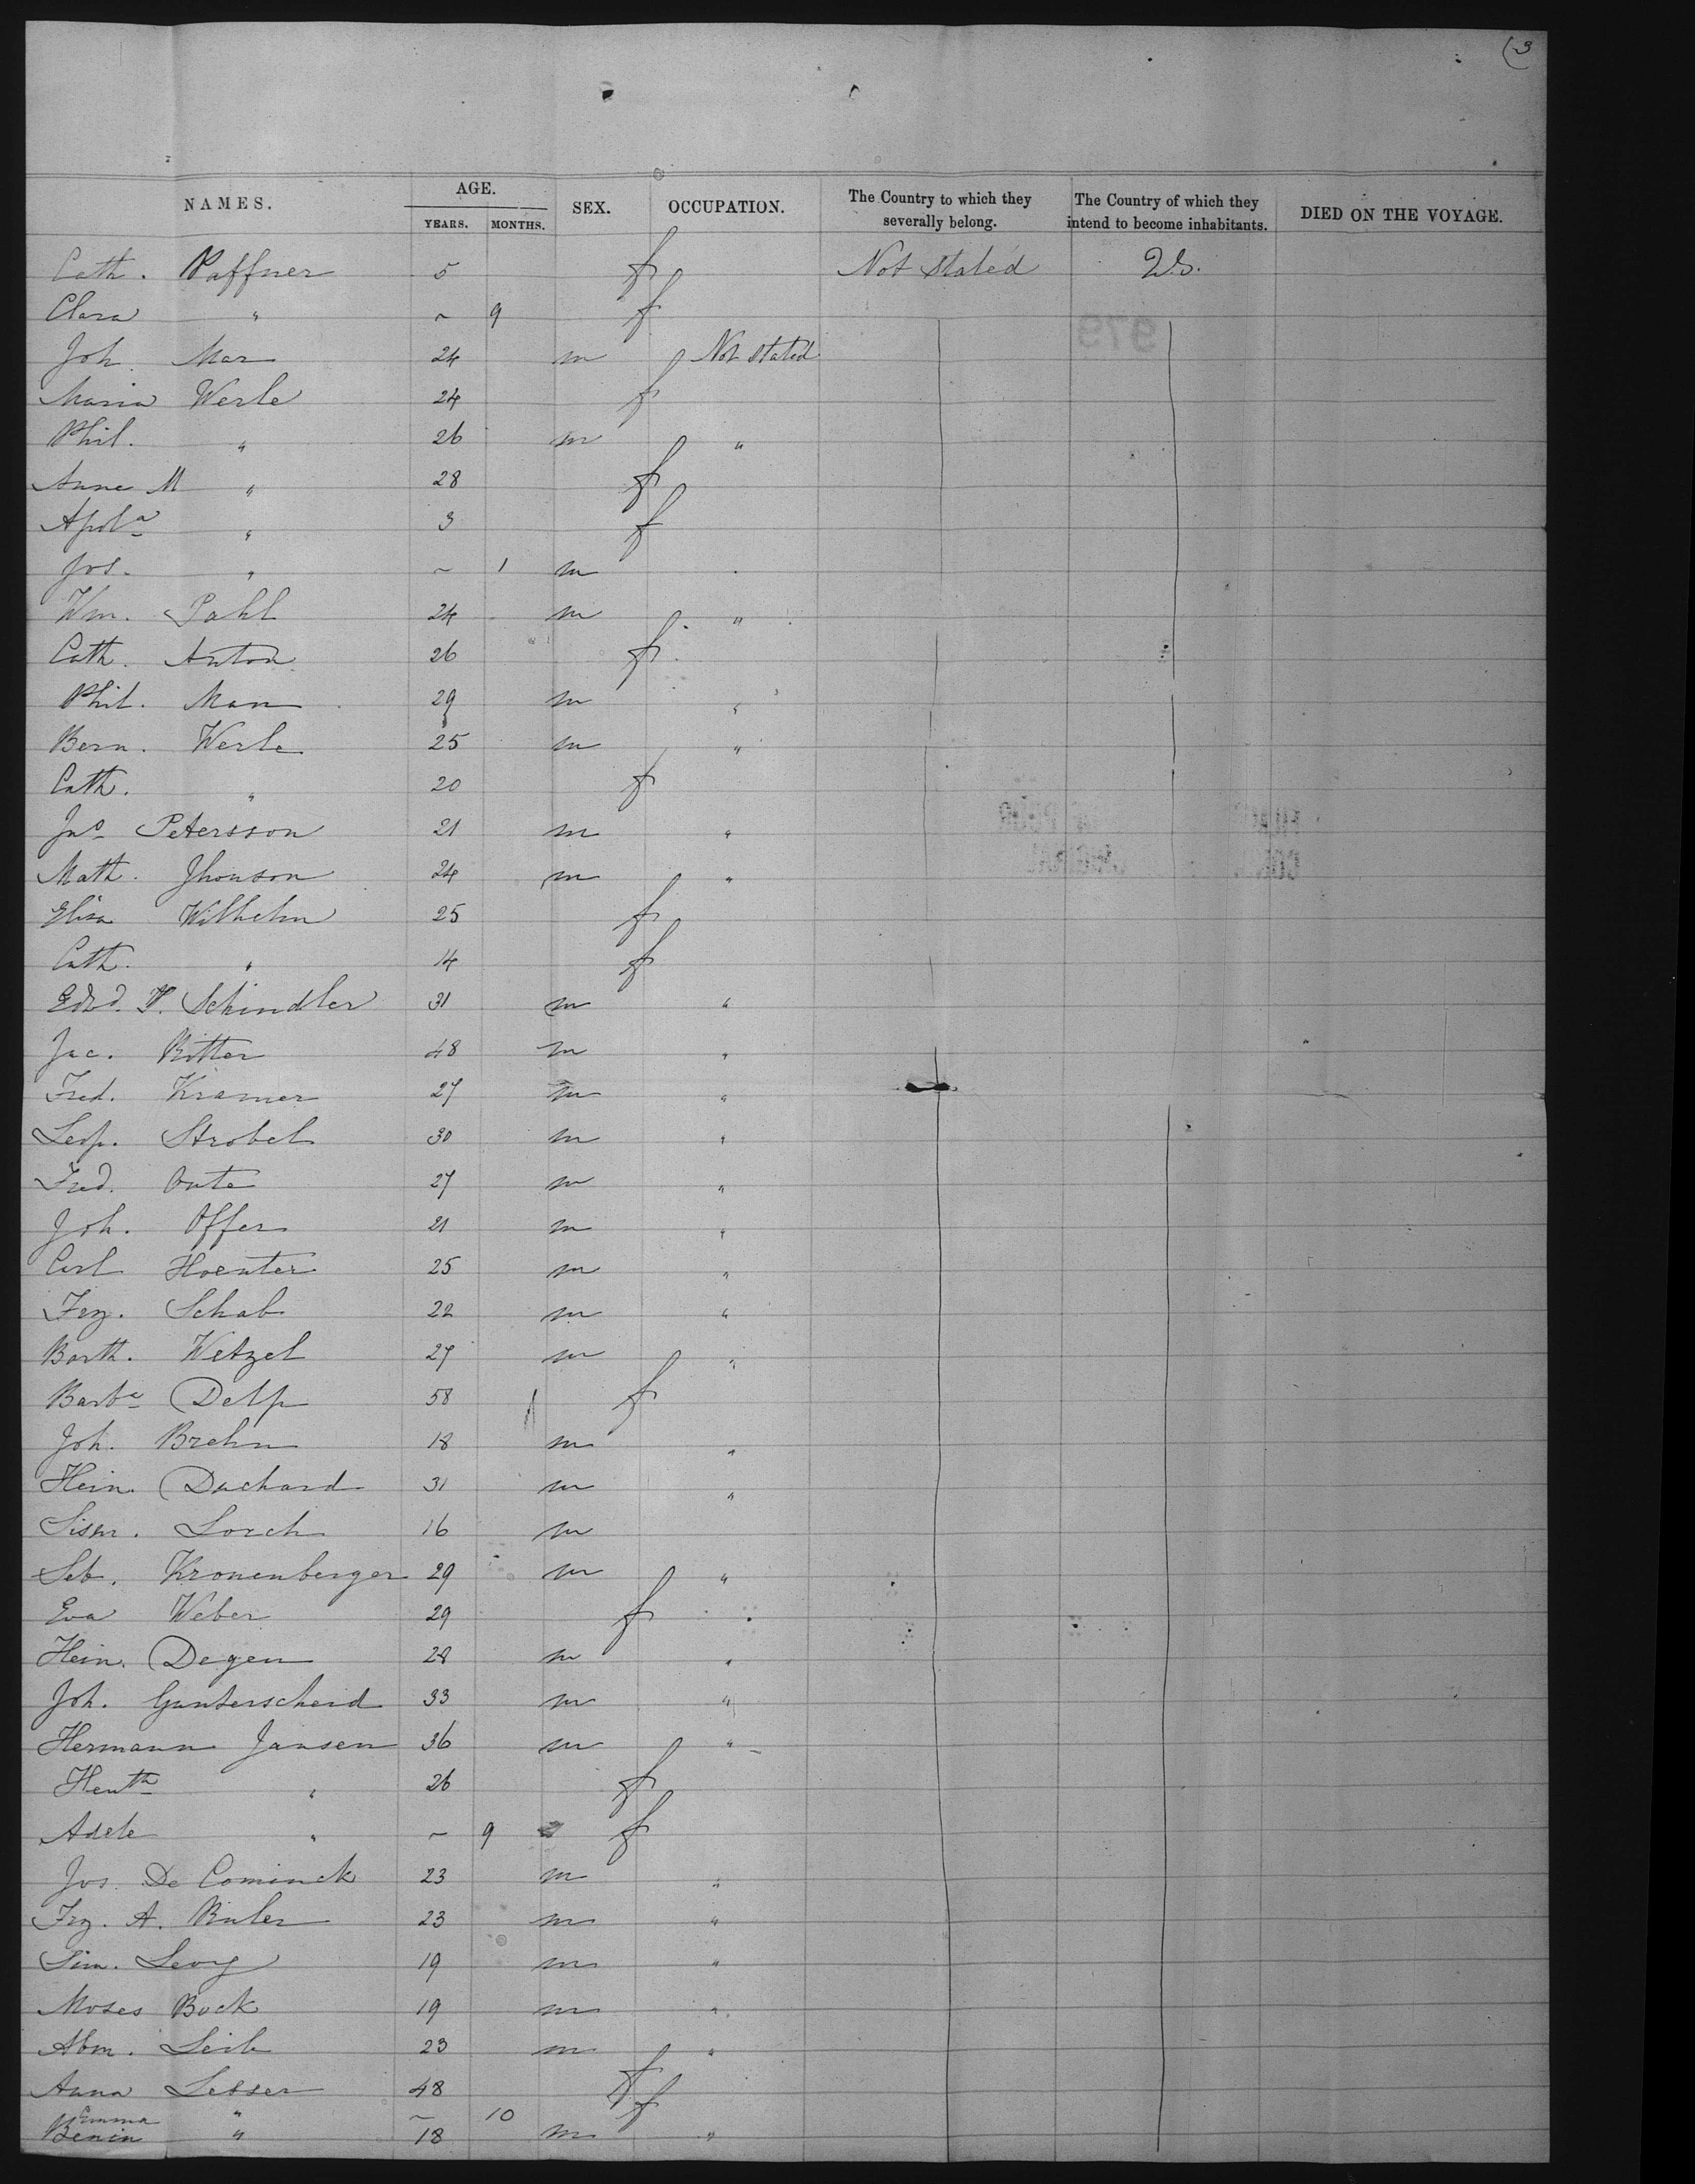 (3
NAMES. AGE. SEX. OCCUPATION. The Country to which they severally belong. The Country of which they intend to become inhabitants. DIED ON THE VOYAGE.
YEARS. MONTHS.
Cath. Paffner 5 f Not Stated U.S.
Clara " ~ 9 f
Joh. Mar 24 m Not stated
Maria Werle 24 f
Phil. " 26 m "
Anne M " 28 f
Apola " 3 f
Jos. " ~ 1 m
Wm. Pahl 24 m "
Cath. Anton 26 f
Phil. Man 29 m "
Bern. Werle 25 m "
Cath. " 20 f
Jno Petersson 21 m "
Math. Jhonson 24 m "
Elisa Wilhelm 25 f
Cath. " 14 f
Edwd. F. Schindler 31 m "
Jac. Ritter 48 m "
Fred. Kramer 27 m "
Leop. Strobel 30 m "
Fred. 27 m "
Joh. Offer 21 m "
Carl Hoenter 25 m "
Frz. Schab 22 m "
Barth. Wetzel 27 m "
Barba Delp 58 f
Joh. Brehm 18 m "
Hein. Duchard 31 m "
Lorch 16 m
Seb. Kronenberger 29 m "
Eva Weber 29 f
Hein. Degen 28 m "
Joh. Gunterscheid 33 m "
Hermann Jansen 36 m "
" 26 f
Adele " ~ 9 f
Jos. De Cominck 23 m "
Frz. A. 23 m "
Sim. Levy 19 m "
Moses Bock 19 m "
Abm. Leib 23 m "
Anna Lesser 48 f
Emma " ~ 10 f
Benin " 18 m "